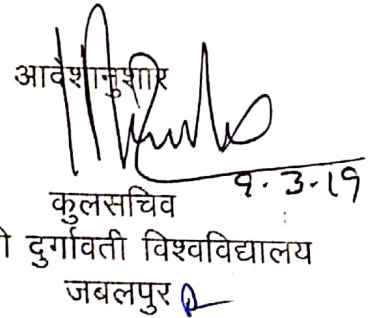 आदेशानुशार
9.3.19
कुलसचिव
दुर्गावती विश्वविद्यालय
जबलपुर